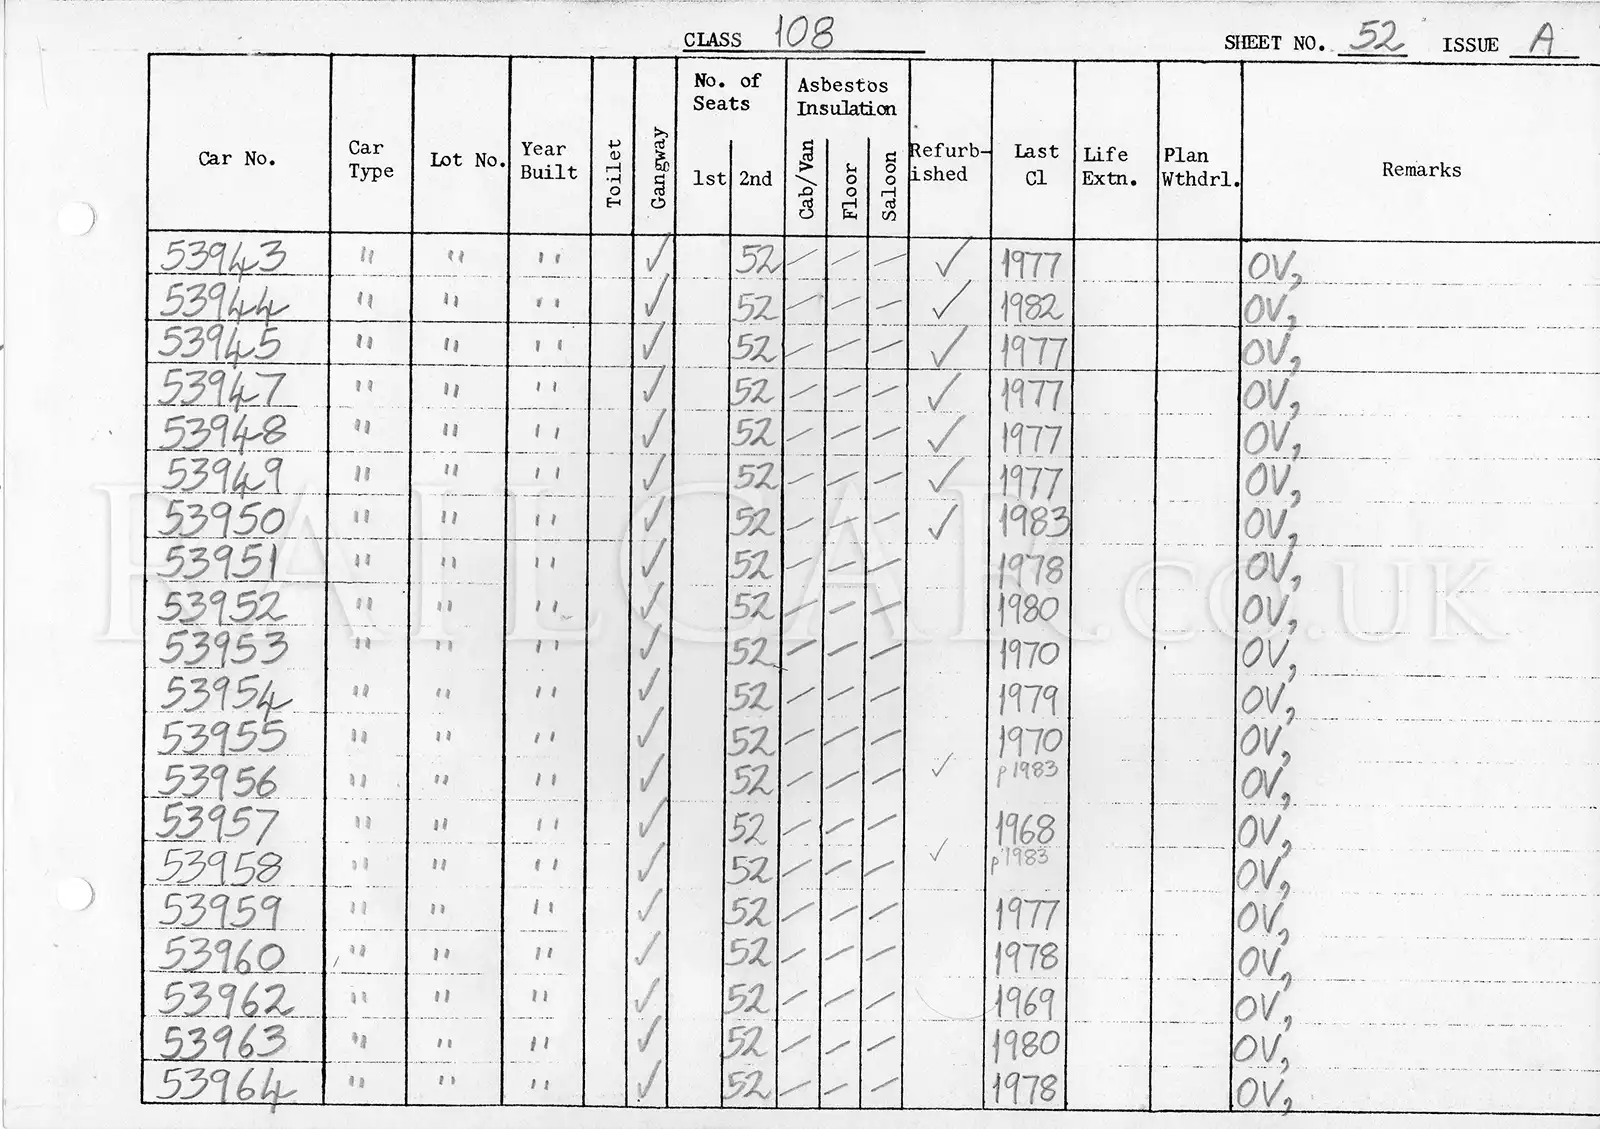 CLASS 108 SHEET NO. 52 ISSUE A
Car No. Car Type Lot No. Year Built Toilet Gangway No. of Seats 1st 2nd Asbestos Insulation Cab/Van Floor Saloon Refurb-ished Last Cl Life Extn. Plan Wthdrl. Remarks
53943 " " " ✓ 52 / / / ✓ 1977 OV,
53944 " " " ✓ 52 / / / ✓ 1982 OV,
53945 " " " ✓ 52 / / / ✓ 1977 OV,
53947 " " " ✓ 52 / / / ✓ 1977 OV,
53948 " " " ✓ 52 / / / ✓ 1977 OV,
53949 " " " ✓ 52 / / / ✓ 1977 OV,
53950 " " " ✓ 52 / / / ✓ 1983 OV,
53951 " " " ✓ 52 / / / 1978 OV,
53952 " " " ✓ 52 / / / 1980 OV,
53953 " " " ✓ 52 / / / 1970 OV,
53954 " " " ✓ 52 / / / 1979 OV,
53955 " " " ✓ 52 / / / 1970 OV,
53956 " " " ✓ 52 / / / ✓ p1983 OV,
53957 " " " ✓ 52 / / / 1968 OV,
53958 " " " ✓ 52 / / / ✓ p1983 OV,
53959 " " " ✓ 52 / / / 1977 OV,
53960 " " " ✓ 52 / / / 1978 OV,
53962 " " " ✓ 52 / / / 1969 OV,
53963 " " " ✓ 52 / / / 1980 OV,
53964 " " " ✓ 52 / / / 1978 OV,
RAILCAR.CO.UK